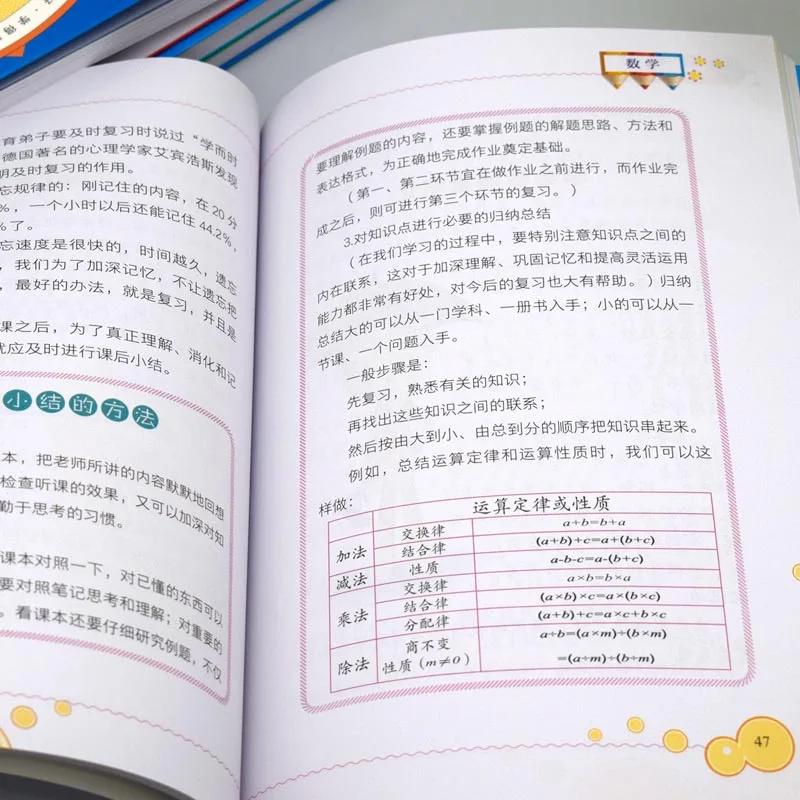 育弟子要及时复习时说过“学而时
德国著名的心理学家艾宾浩斯发现
明及时复习的作用。
忘规律的：刚记住的内容，在20分
%，一个小时以后还能记住44.2%，
%了。
忘速度是很快的，时间越久，遗忘
，我们为了加深记忆，不让遗忘把
，最好的办法，就是复习，并且是
课之后，为了真正理解、消化和记
就应及时进行课后小结。
小结的方法
本，把老师所讲的内容默默地回想
检查听课的效果，又可以加深对知
勤于思考的习惯。
课本对照一下，对已懂的东西可以
要对照笔记思考和理解；对重要的
。看课本还要仔细研究例题，不仅
数学
要理解例题的内容，还要掌握例题的解题思路、方法和
表达格式，为正确地完成作业奠定基础。
（第一、第二环节宜在做作业之前进行，而作业完
成之后，则可进行第三个环节的复习。）
3.对知识点进行必要的归纳总结
（在我们学习的过程中，要特别注意知识点之间的
内在联系，这对于加深理解、巩固记忆和提高灵活运用
能力都非常有好处，对今后的复习也大有帮助。）归纳
总结大的可以从一门学科、一册书入手；小的可以从一
节课、一个问题入手。
一般步骤是：
先复习，熟悉有关的知识；
再找出这些知识之间的联系；
然后按由大到小、由总到分的顺序把知识串起来。
例如，总结运算定律和运算性质时，我们可以这
样做：
运算定律或性质
加法 交换律 a+b=b+a
结合律 (a+b)+c=a+(b+c)
减法 性质 a-b-c=a-(b+c)
乘法 交换律 a×b=b×a
结合律 (a×b)×c=a×(b×c)
分配律 (a+b)×c=a×c+b×c
除法 商不变 a÷b=(a×m)÷(b×m)
性质(m≠0) =(a÷m)÷(b÷m)
47